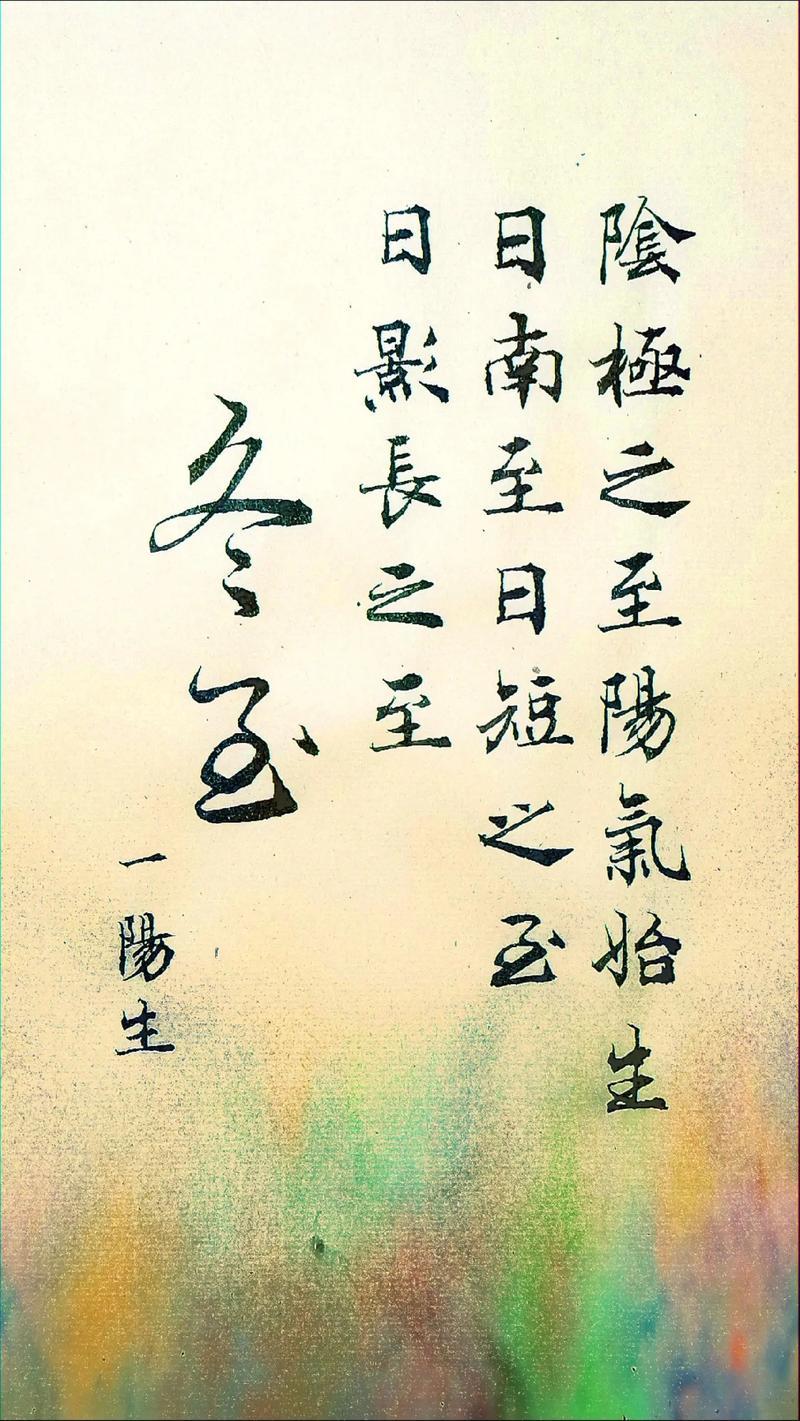 陰極之至陽氣始生
日南至日短之至
日影長之至
冬至
一陽生